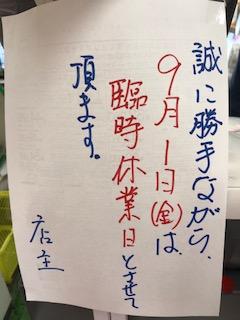 誠に勝手ながら、
9月1日(金)は、
臨時休業日とさせて
頂ます。
店主